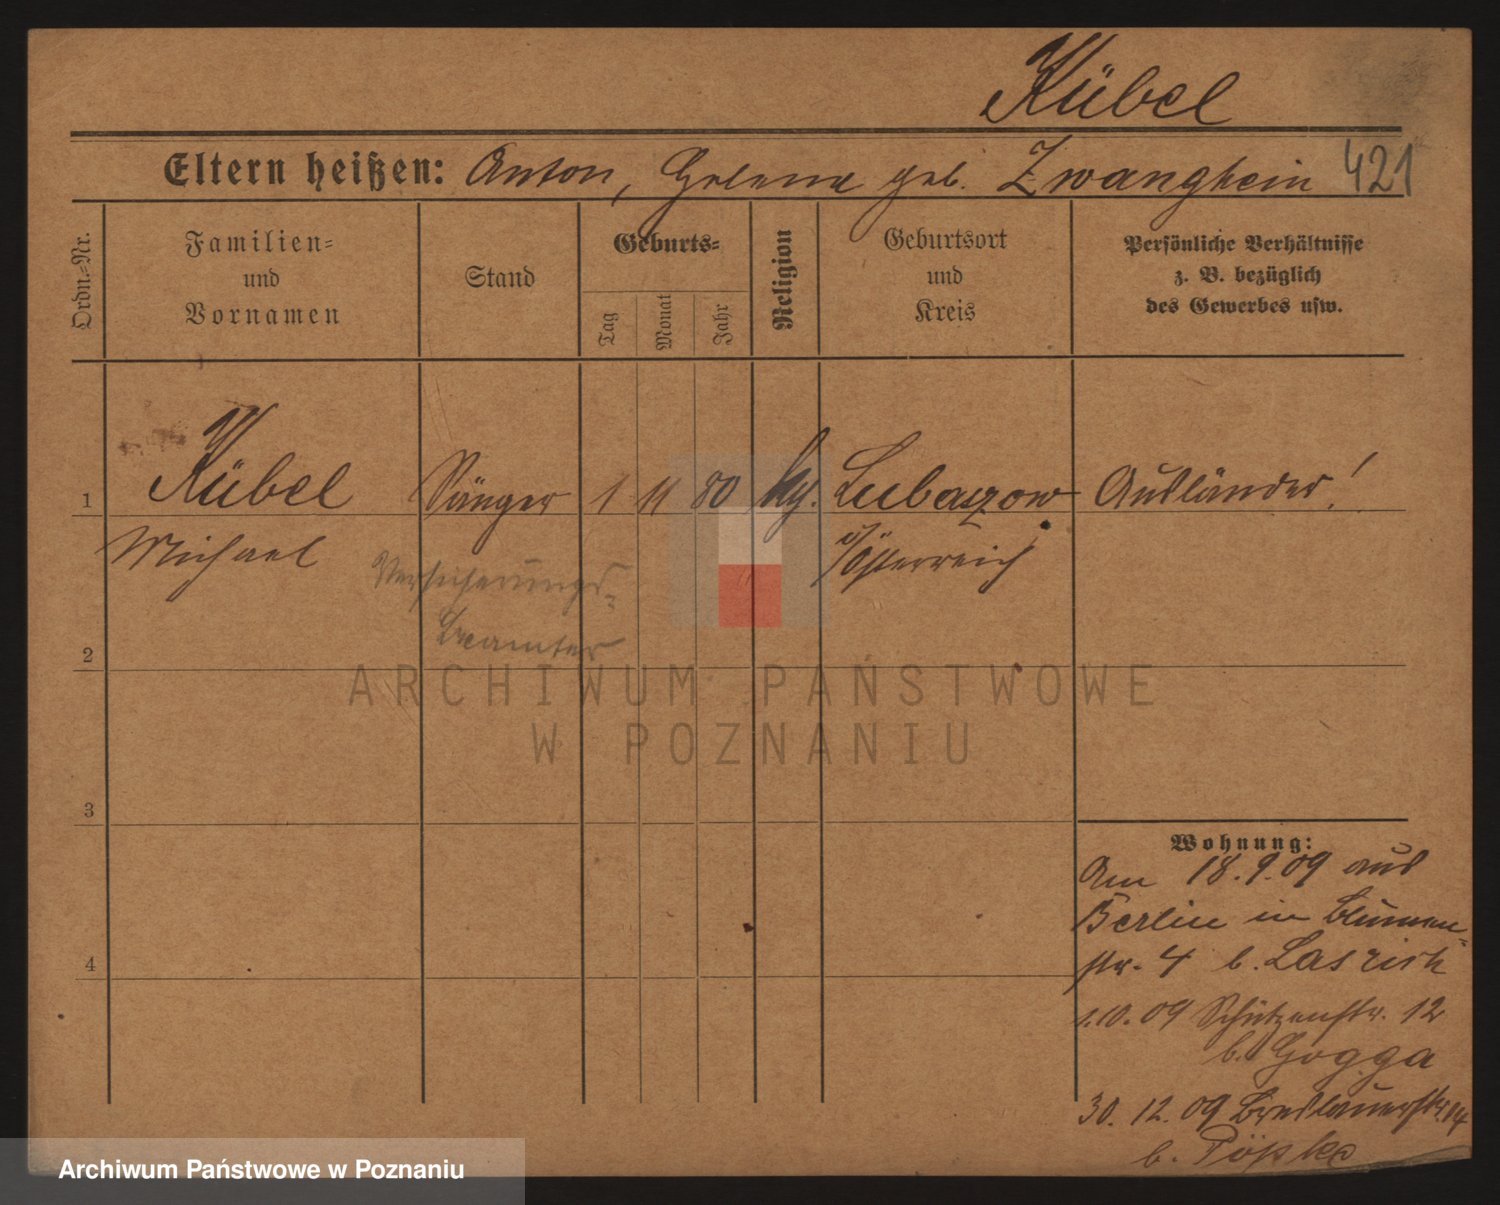 Kübel
Eltern heißen: Anton, Helena geb. Zwanghein 421
Ordn.-Nr.
Familien-
und
Vornamen
Stand
Geburts-
Tag
Monat
Jahr
Religion
Geburtsort
und
Kreis
Persönliche Verhältnisse
z. B. bezüglich
des Gewerbes usw.
1 Kübel Sänger 1 11 80 Lubaczow Ausländer!
Michael Österreich
Versicherungs-
beamter
2
3
4
Wohnung:
Am 18.9.09 aus
Berlin in Blumen-
str. 4 b.
1.10.09 Schützenstr. 12
b. Gogga
30.12.09 Breslauerstr. 14
b. Pöpke
ARCHIWUM PAŃSTWOWE
W POZNANIU
Archiwum Państwowe w Poznaniu